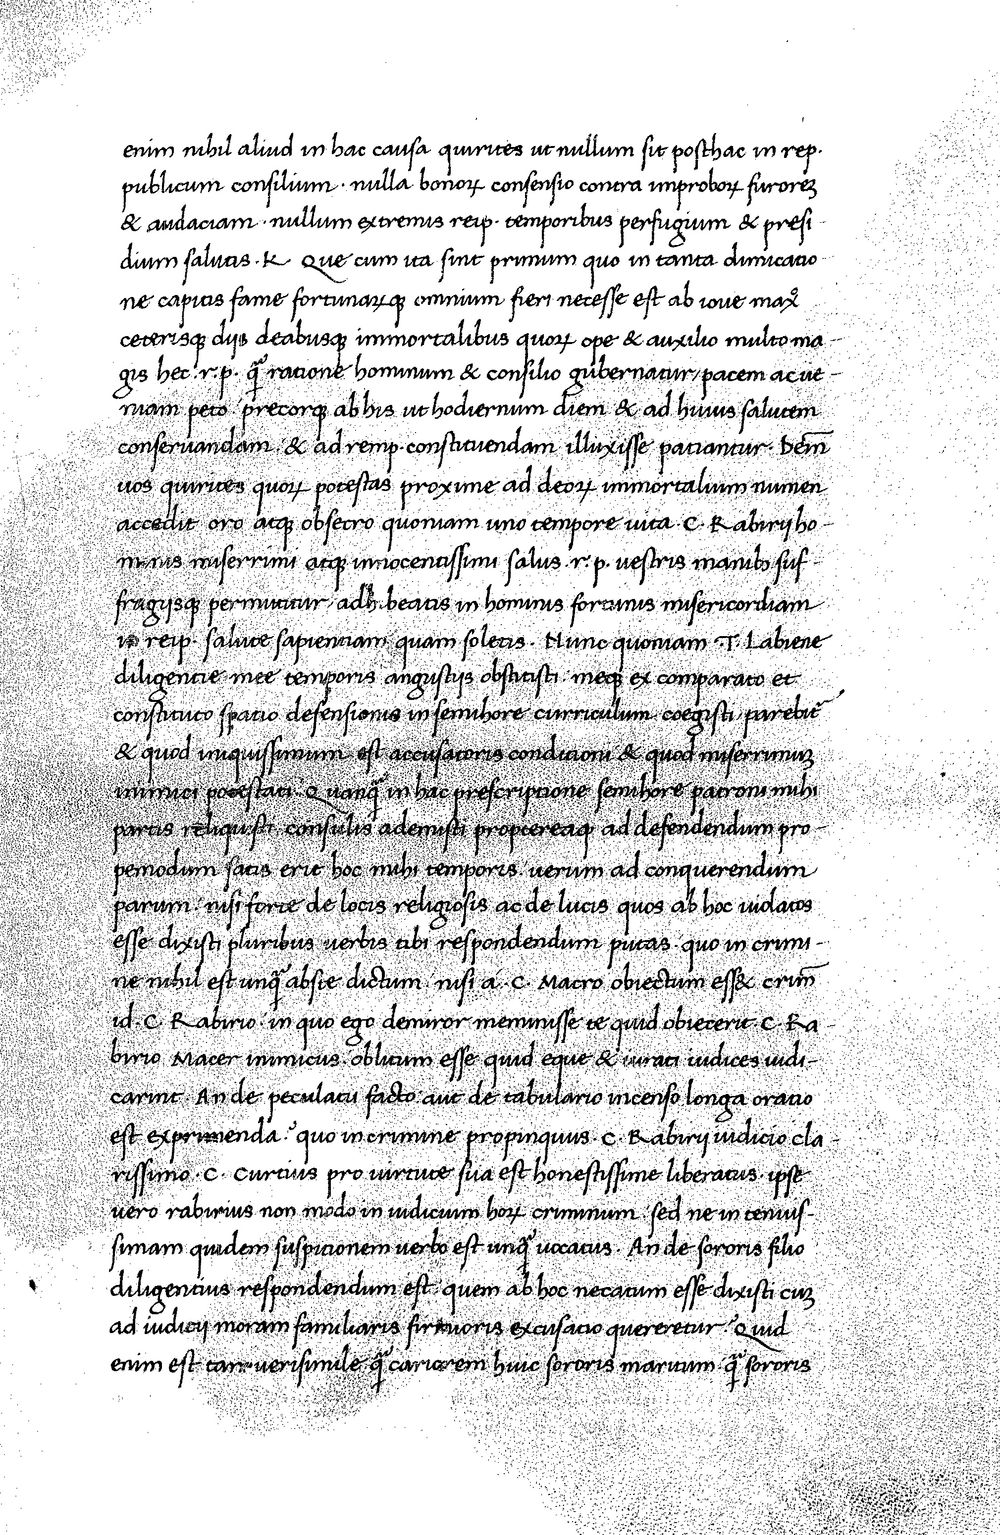 enim nihil aliud in hac causa quirites ut nullum sit posthac in rep.
publicum consilium · nulla bonoꝝ consensio contra improboꝝ furoreꝫ
& audaciam · nullum extremis reip· temporibus perfugium & presi-
dium salutis · K Que cum ita sint primum quo in tanta dimicatio-
ne capitis fame fortunaꝝqꝫ omnium fieri necesse est ab ioue max̊
ceterisqꝫ dijs deabusqꝫ immortalibus quoꝝ ope & auxilio multo ma-
gis hec .r.p. qᷓ ratione hominum & consilio gubernatur/ pacem ac ue-
niam peto precorqꝫ ab his ut hodiernum diem & ad huius salutem
conseruandam · & ad remp· constituendam illuxisse patiantur · Dem̅
uos quirites quoꝝ potestas proxime ad deoꝝ immortalium numen
accedit oro atqꝫ obsecro quoniam uno tempore uita C. Rabirij ho-
minis miserrimi atqꝫ innocentissimi salus .r.p. uestris manibꝫ suf-
fragijsqꝫ permittitur/ adh̅beatis in hominis fortunis misericordiam
in reip· salute sapientiam quam soletis · Nunc quoniam ·T· Labiene
diligentie mee temporis angustijs obstitisti · meqꝫ ex comparato et
constituto spatio defensionis in semihore curriculum coegisti/ parebit̅
& quod iniquissimum est accusatoris condicioni & quod miserrimuꝫ
inimici potestati · Quanqᷓ in hac prescriptione semihore patroni mihi
partis reliquisti consulis ademisti proptereaqꝫ ad defendendum pro-
pemodum satis erit hoc mihi temporis · uerum ad conquerendum
parum · nisi forte de locis religiosis ac de lucis quos ab hoc uiolatos
esse dixisti pluribus uerbis tibi respondendum putas · quo in crimi-
ne nihil est unqᷓ abs te dictum · nisi a · C · Macro obiectum ess& crim̅
id · C · Rabirio · in quo ego demiror meminisse te quid obiecerit · C · Ra-
birio Macer inimicus · oblitum esse quid eque & iurati iudices iudi-
carint · An de peculatu facto aut de tabulario incenso longa oratio
est exprimenda · quo in crimine propinquus · C · Rabirij iudicio cla-
rissimo · C · Curtius pro uirtute sua est honestissime liberatus · ipse
uero rabirius non modo in iudicium hoꝝ criminum · sed ne in tenuis-
simam quidem suspitionem uerbo est unqᷓ uocatus · An de sororis filio
diligentius respondendum est · quem ab hoc necatum esse dixisti cuꝫ
ad iudicij moram familiaris excusatio quereretur · Quid
enim est tam uerisimile qᷓ cariorem huic sororis maritum qᷓ sororis